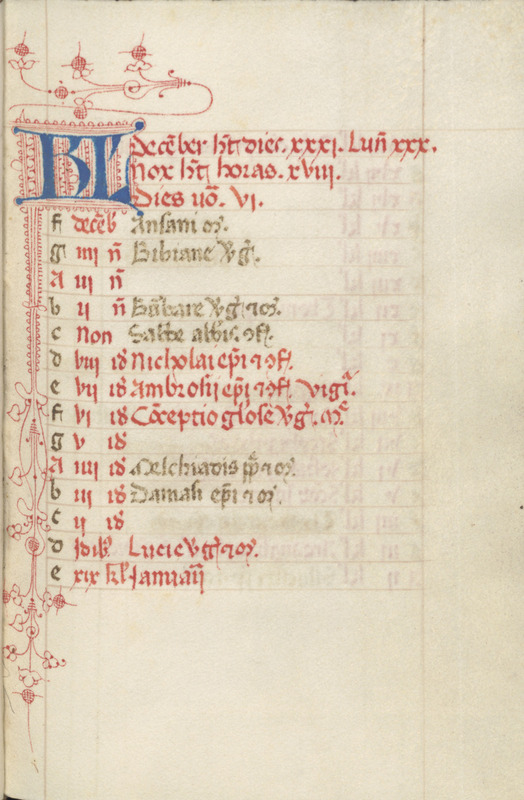 KL decēber hꝫ dies. xxxi. Luñ xxx.
nox hꝫ horas. xviii.
Dies uō. vi.
f decēb Ansani mꝛ.
g iiii ñ Bibiane vgꝭ.
A iii ñ
b ii ñ Barbare vgꝭ ⁊ mꝛ.
c Non Sabbe abbis. ⁊ ꝯf.
d viii id Nicholai epi ⁊ ꝯf.
e vii id Ambrosii epi ⁊ ꝯf. vigꝉa.
f vi id Cōceptio gl'ose vgꝭ. m̄e
g v id
A iiii id Melchiadis pp ⁊ mꝛ.
b iii id Damasi epi ⁊ ꝯf.
c ii id
d idibꝫ Lucie vgꝭ ⁊ mꝛ.
e xix kl Januarii